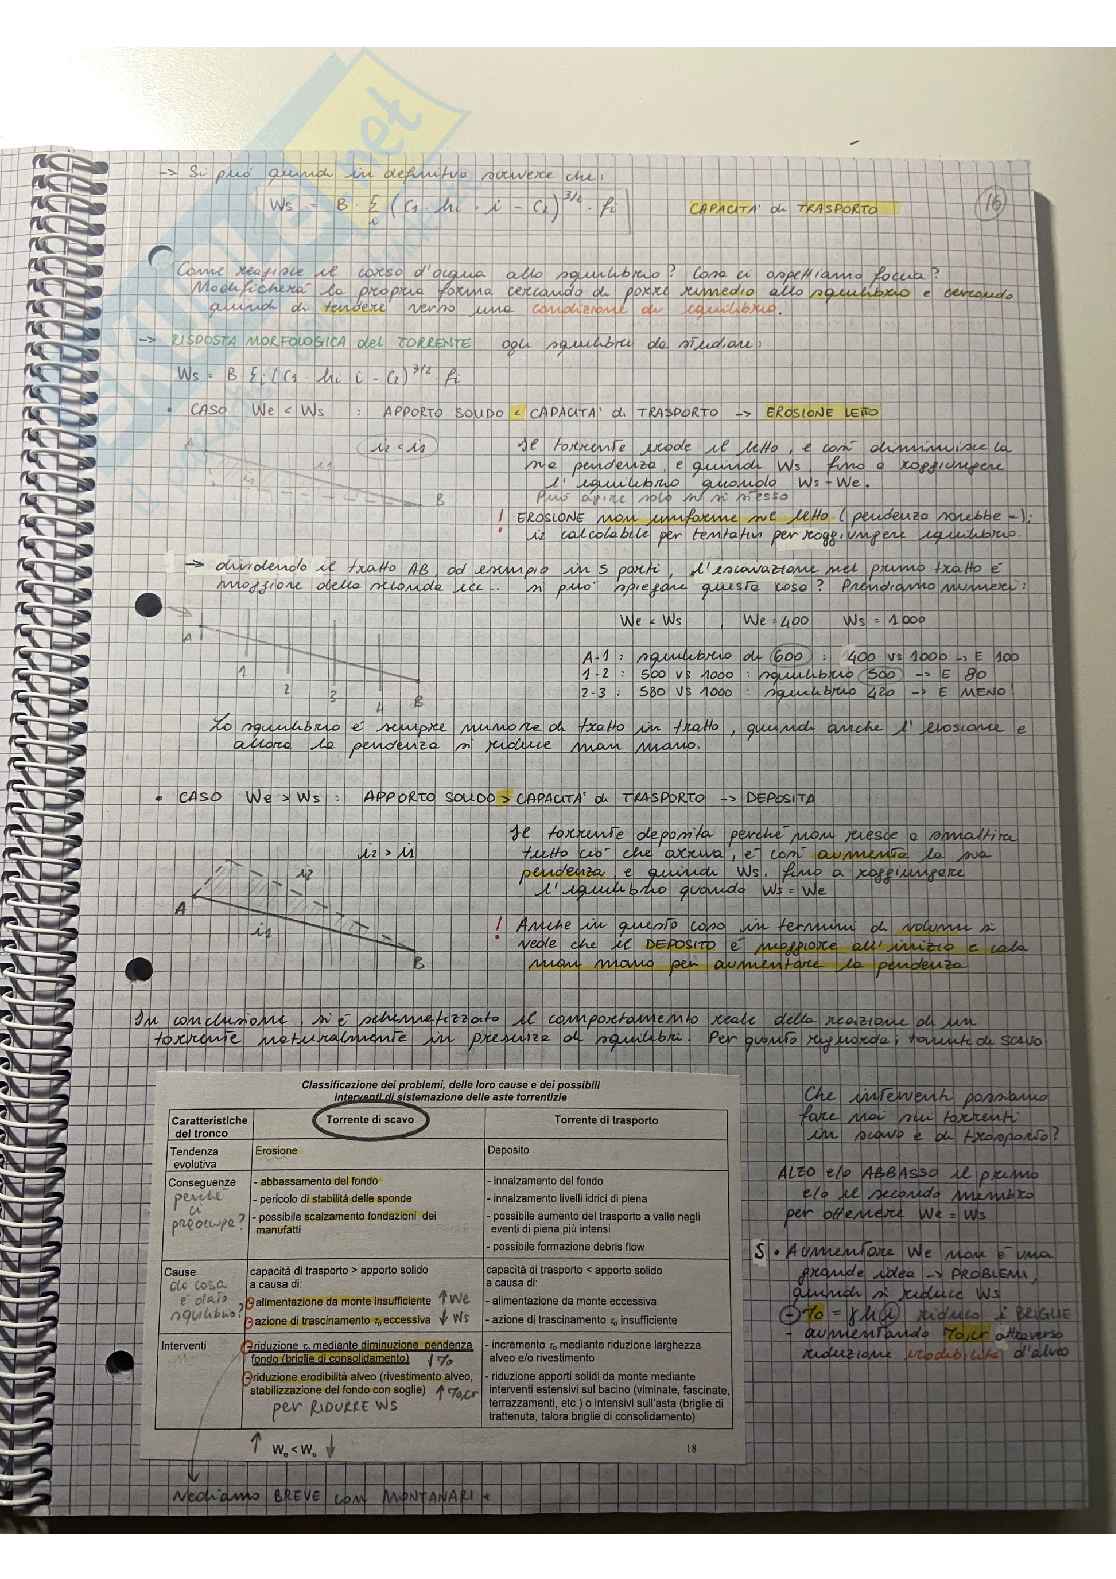 -> Si può quindi in definitiva scrivere che:
Ws = B · Σi (C1 · hi · i - C2)^3/2 · fi
CAPACITA' di TRASPORTO
16
Come reagisce il corso d'acqua allo squilibrio? Cosa ci aspettiamo faccia?
Modificherà la propria forma cercando di porre rimedio allo squilibrio e cercando
quindi di tendere verso una condizione di equilibrio.
-> RISPOSTA MORFOLOGICA del TORRENTE agli squilibri da studiare:
Ws = B Σi (C1 · hi i - C2)^3/2 fi
• CASO We < Ws : APPORTO SOLIDO < CAPACITA' di TRASPORTO -> EROSIONE LETTO
A
i2 < i1
i1
i2
B
Il torrente erode il letto, e così diminuisce la
sua pendenza, e quindi Ws, fino a raggiungere
l'equilibrio quando Ws = We.
Può agire solo su sé stesso
! EROSIONE non uniforme sul letto (pendenza sarebbe =);
i2 calcolabile per tentativi per raggiungere equilibrio.
-> dividendo il tratto AB, ad esempio in 5 parti, l'escavazione nel primo tratto è
maggiore della seconda ecc.. si può spiegare questa cosa? Prendiamo numeri:
We < Ws , We = 400 Ws = 1000
A
1
2
3
4
B
A-1 : squilibrio di 600 : 400 vs 1000 -> E 100
1-2 : 500 vs 1000 : squilibrio 500 -> E 80
2-3 : 580 vs 1000 : squilibrio 420 -> E MENO!
Lo squilibrio è sempre minore di tratto in tratto, quindi anche l'erosione e
allora la pendenza si riduce man mano.
• CASO We > Ws : APPORTO SOLIDO > CAPACITA' di TRASPORTO -> DEPOSITA
i2 > i1
i2
A
i1
B
Il torrente deposita perché non riesce a smaltire
tutto ciò che arriva, e così aumenta la sua
pendenza e quindi Ws, fino a raggiungere
l'equilibrio quando Ws = We
! Anche in questo caso in termini di volumi si
vede che il DEPOSITO è maggiore all'inizio e cala
man mano per aumentare la pendenza
In conclusione, si è schematizzato il comportamento reale della reazione di un
torrente naturalmente in presenza di squilibri. Per quanto riguarda i torrenti di scavo
Classificazione dei problemi, delle loro cause e dei possibili
interventi di sistemazione delle aste torrentizie
Caratteristiche del tronco
Torrente di scavo
Torrente di trasporto
Tendenza evolutiva
Erosione
Deposito
Conseguenze
perché ci preoccupa?
- abbassamento del fondo
- pericolo di stabilità delle sponde
- possibile scalzamento fondazioni dei
manufatti
- innalzamento del fondo
- innalzamento livelli idrici di piena
- possibile aumento del trasporto a valle negli
eventi di piena più intensi
- possibile formazione debris flow
Cause
da cosa è dato squilibrio?
capacità di trasporto > apporto solido
a causa di:
- alimentazione da monte insufficiente ↑ We
- azione di trascinamento τ0 eccessiva ↓ Ws
capacità di trasporto < apporto solido
a causa di:
- alimentazione da monte eccessiva
- azione di trascinamento τ0 insufficiente
Interventi
- riduzione τ0 mediante diminuzione pendenza
fondo (briglie di consolidamento) ↓ τ0
- riduzione erodibilità alveo (rivestimento alveo,
stabilizzazione del fondo con soglie) ↑ τ0,cr
per RIDURRE Ws
- incremento τ0 mediante riduzione larghezza
alveo e/o rivestimento
- riduzione apporti solidi da monte mediante
interventi estensivi sul bacino (viminate, fascinate,
terrazzamenti, etc.) o intensivi sull'asta (briglie di
trattenuta, talora briglie di consolidamento)
↑ We < Ws ↓
18
Che interventi possiamo
fare noi sui torrenti
in scavo e di trasporto?
ALZO e/o ABBASSO il primo
e/o il secondo membro
per ottenere We = Ws
S • Aumentare We non è una
grande idea -> PROBLEMI,
quindi si riduce Ws
- τ0 = γ h i riduco i BRIGLIE
- aumentando τ0,cr attraverso
riduzione erodibilità d'alveo
Vediamo BREVE con MONTANARI